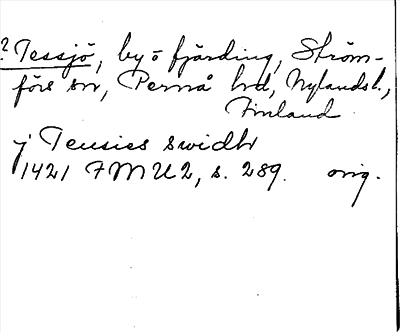 ? Tessjö, by o fjärding, Ström-
fors sn, Pernå hd, Nylands l.,
Finland
j Teusies swidh
1421 FMU 2, s. 289. orig.